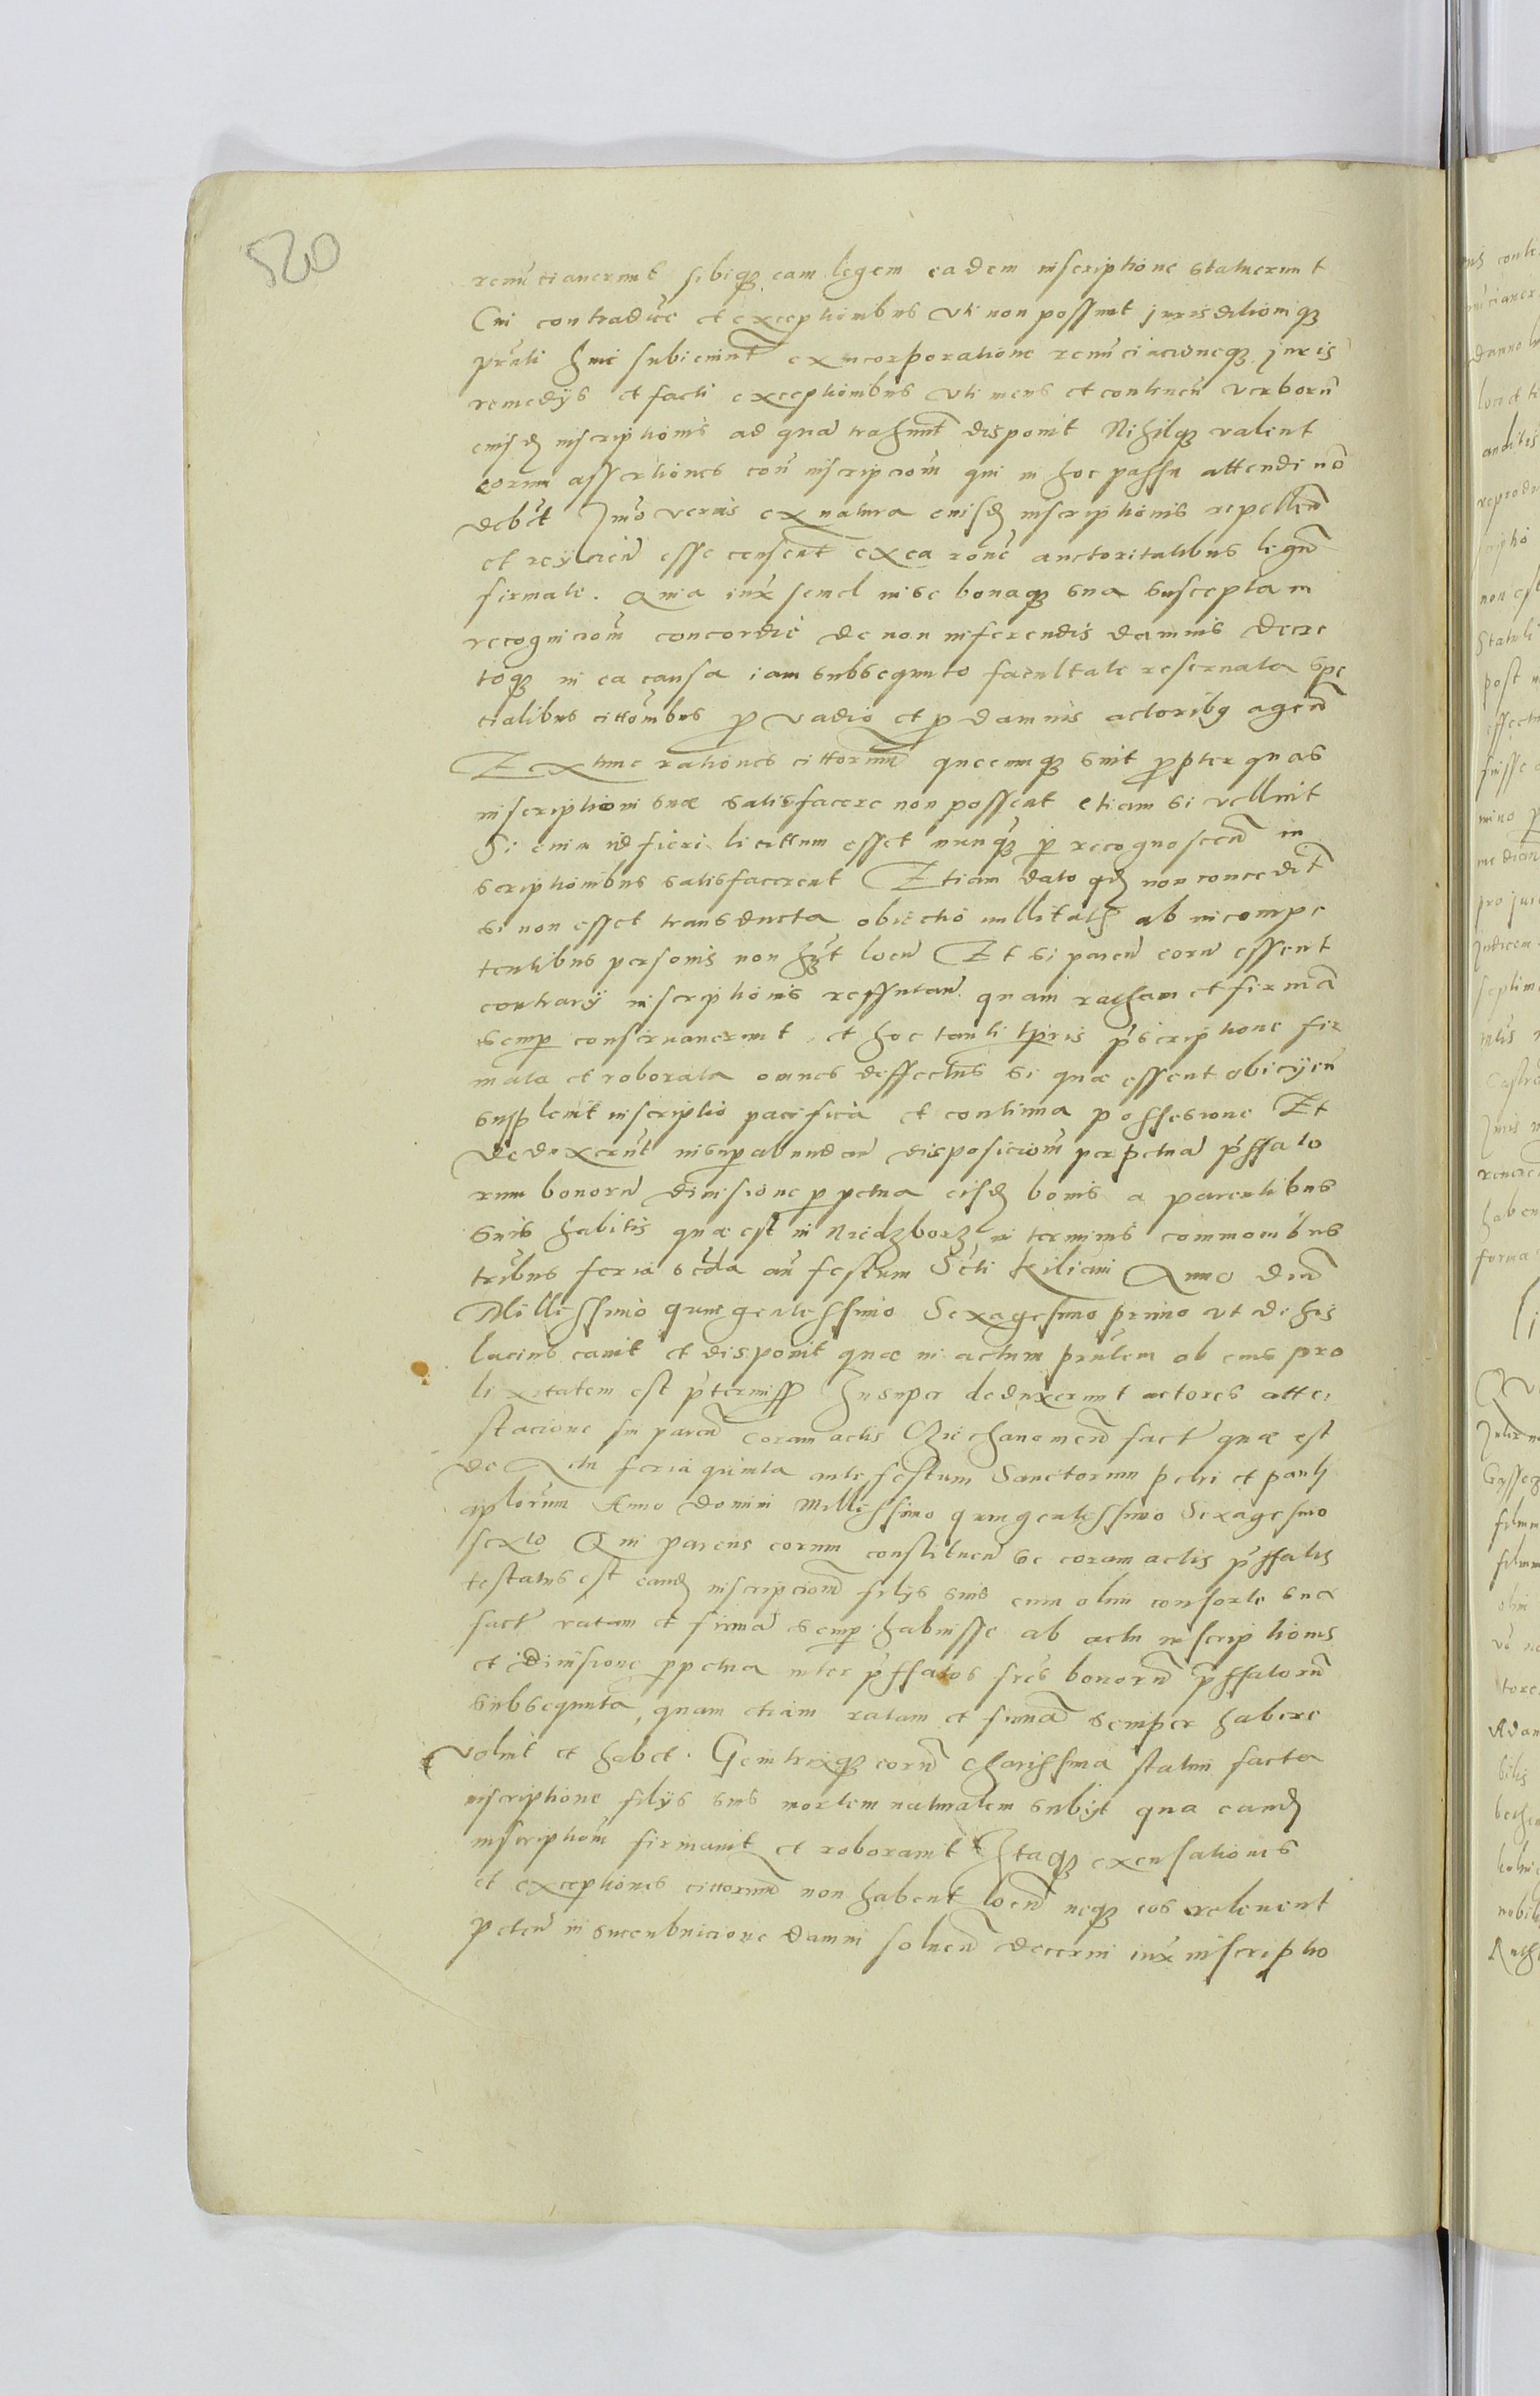 520
renuciauerunt sibiq₃ eam legem eadem inscriptione statuerunt
Cui contradice et exceptionibus uti non possunt jurisditioniq₃
pnti huic subieiunt ex incorporatione renuciacioneq₃ juris
remedijs et facti exceptionibus uti mens et continen verboru
eiusd inscriptionis ad qua trahunt disponit Nihilq₃ valent
eorum assertiones con inscripciom qui in hoc passu attendi no
debet Imo verius ex natura eiusd inscriptionis repellen
et reijcien esse censent ex ea rone auctoritatibus legu
firmati. Quia iux semel in se bonaq₃ sua susceptam
recogniciom concordie de non inferendis damnis decre
toq₃ in ea causa iam subsequuto facultate reseruata spe
cialibus cittombus p vadio et p damnis actoribq agen
Et ex tunc rationes cittorum quecumq₃ sint propter quas
inscriptioni suæ satisfacere non possent etiam si vellint
Si enim id fieri licittum esset nunq₃ p recognoscen in
scriptionibus satisfacerent Etiam dato qd non concedit
si non esset transducta obiectio nullitatis ab incompe
tentibus personis non het locu Et si paren eoru essent
contrarij inscriptionis reffutan quam ratham et firma
semp conseruauerunt et hoc tanti tpris pscriptione fir
mata et roborata omnes deffectus si quæ essent obicijen
supplent inscriptio pacifica et continua possesione Et
dedoxerut insuper abundan disposiciom perpetua pffato
rum bonoru diuisione ppetua eisd bonis a parentibus
suis habitis quæ est in Niedzborz in terminis commonibus
tribus feria scda an festum Scti Kiliani Anno Dni
Millessimo quingentessimo Sexagesimo primo ut de his
lacius canit et disponit quæ in actum pntem ob eius pro
lixitatem est ptermiss Insuper deduxerunt actores atte,
stacione sui paren coram actis Ciechanomen fact quæ est
de Actu feria quinta ante festum Sanctorum petri et pauli
aplorum Anno Domini Millessimo quingentessimo Sexagesimo
sexto Qui parens eorum constituen se coram actis pffatis
testatus est eand inscripciom filijs suis cum olim consorte sua
fact ratam et firma semp habuisse ab actu inscriptionis
et diuisione ppetua inter pffatos fres bonoru pffatoru
subsequuta, quam etiam ratam et firma semper habere
voluit et habet. Genitrixq₃ eoru charissima statim facta
inscriptione filijs suis mortem naturalem subijt qua eand
inscriptiom firmauit et roborauit Itaq₃ excusationes
et exceptiones cittorum non habent locu neq₃ eos releuent
peten in succubuicione damni soluen decerni iux inscriptio